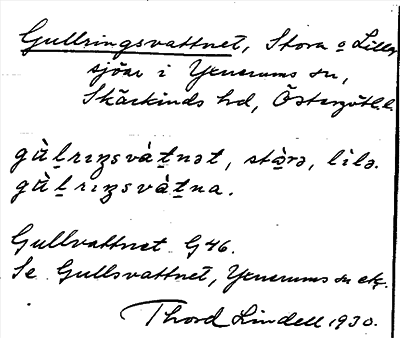 Gullringsvattnet, Stora o Lilla,
sjöar i Yxnerums sn,
Skärkinds hd, Östergötl. l.
gùl̠rɪŋsvàt̠nət, stòrə, lìlə.
gùl̠rɪŋsvàt̠na.
Gullvattnet G 46.
Se Gullsvattnet, Yxnerums sn etc.
Thord Lindell 1930.